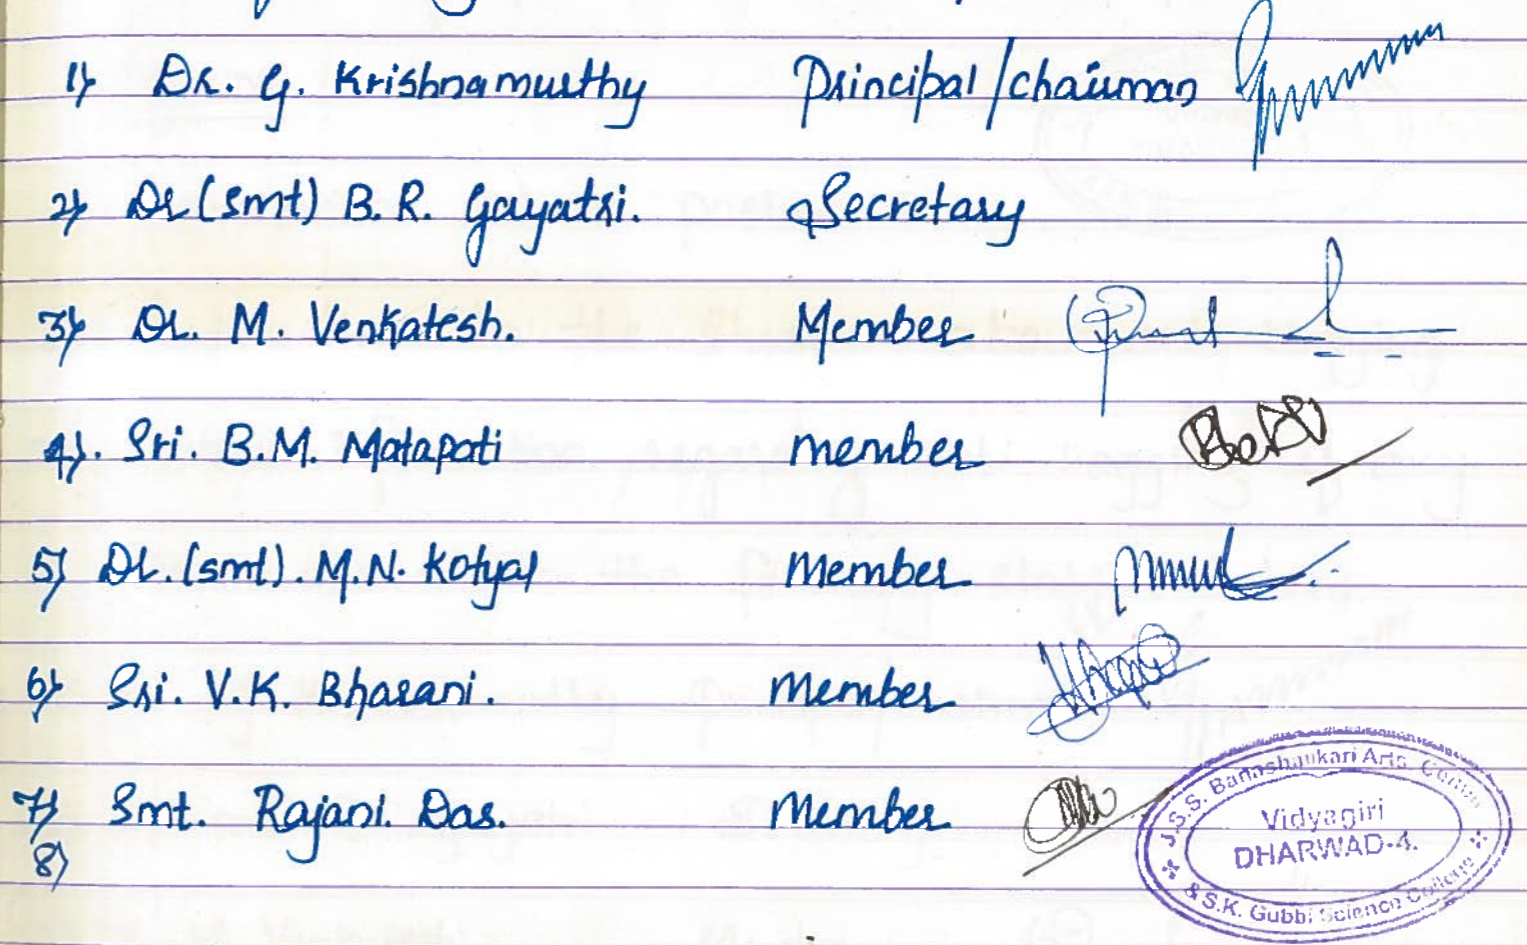 1) Dr. G. Krishnamurthy Principal/chairman
2) Dr (smt) B.R. Gayatri. Secretary
3) Dr. M. Venkatesh. Member
4). Sri. B.M. Matapati member
5) Dr. (smt). M.N. Kotyal Member
6) Sri. V.K. Bharani. Member
7) Smt. Rajani. Das. Member
8)
J.S.S. Banashankari Arts,
Vidyagiri
DHARWAD-4.
& S.K. Gubbi Science College